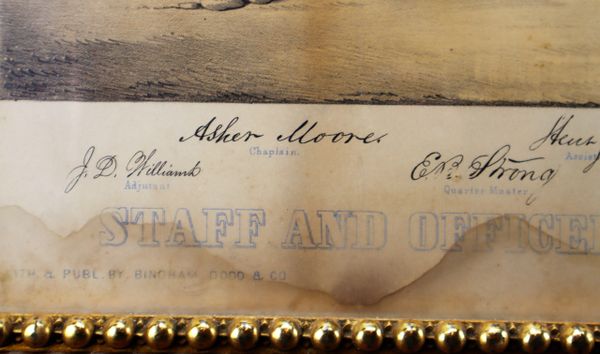 Asher Moore
Chaplain.
J. D. Williams
Adjutant
E. B. Strong
Quarter Master.
Assist
STAFF AND OFFICE
LITH. & PUBL. BY, BINGHAM, DODD & CO